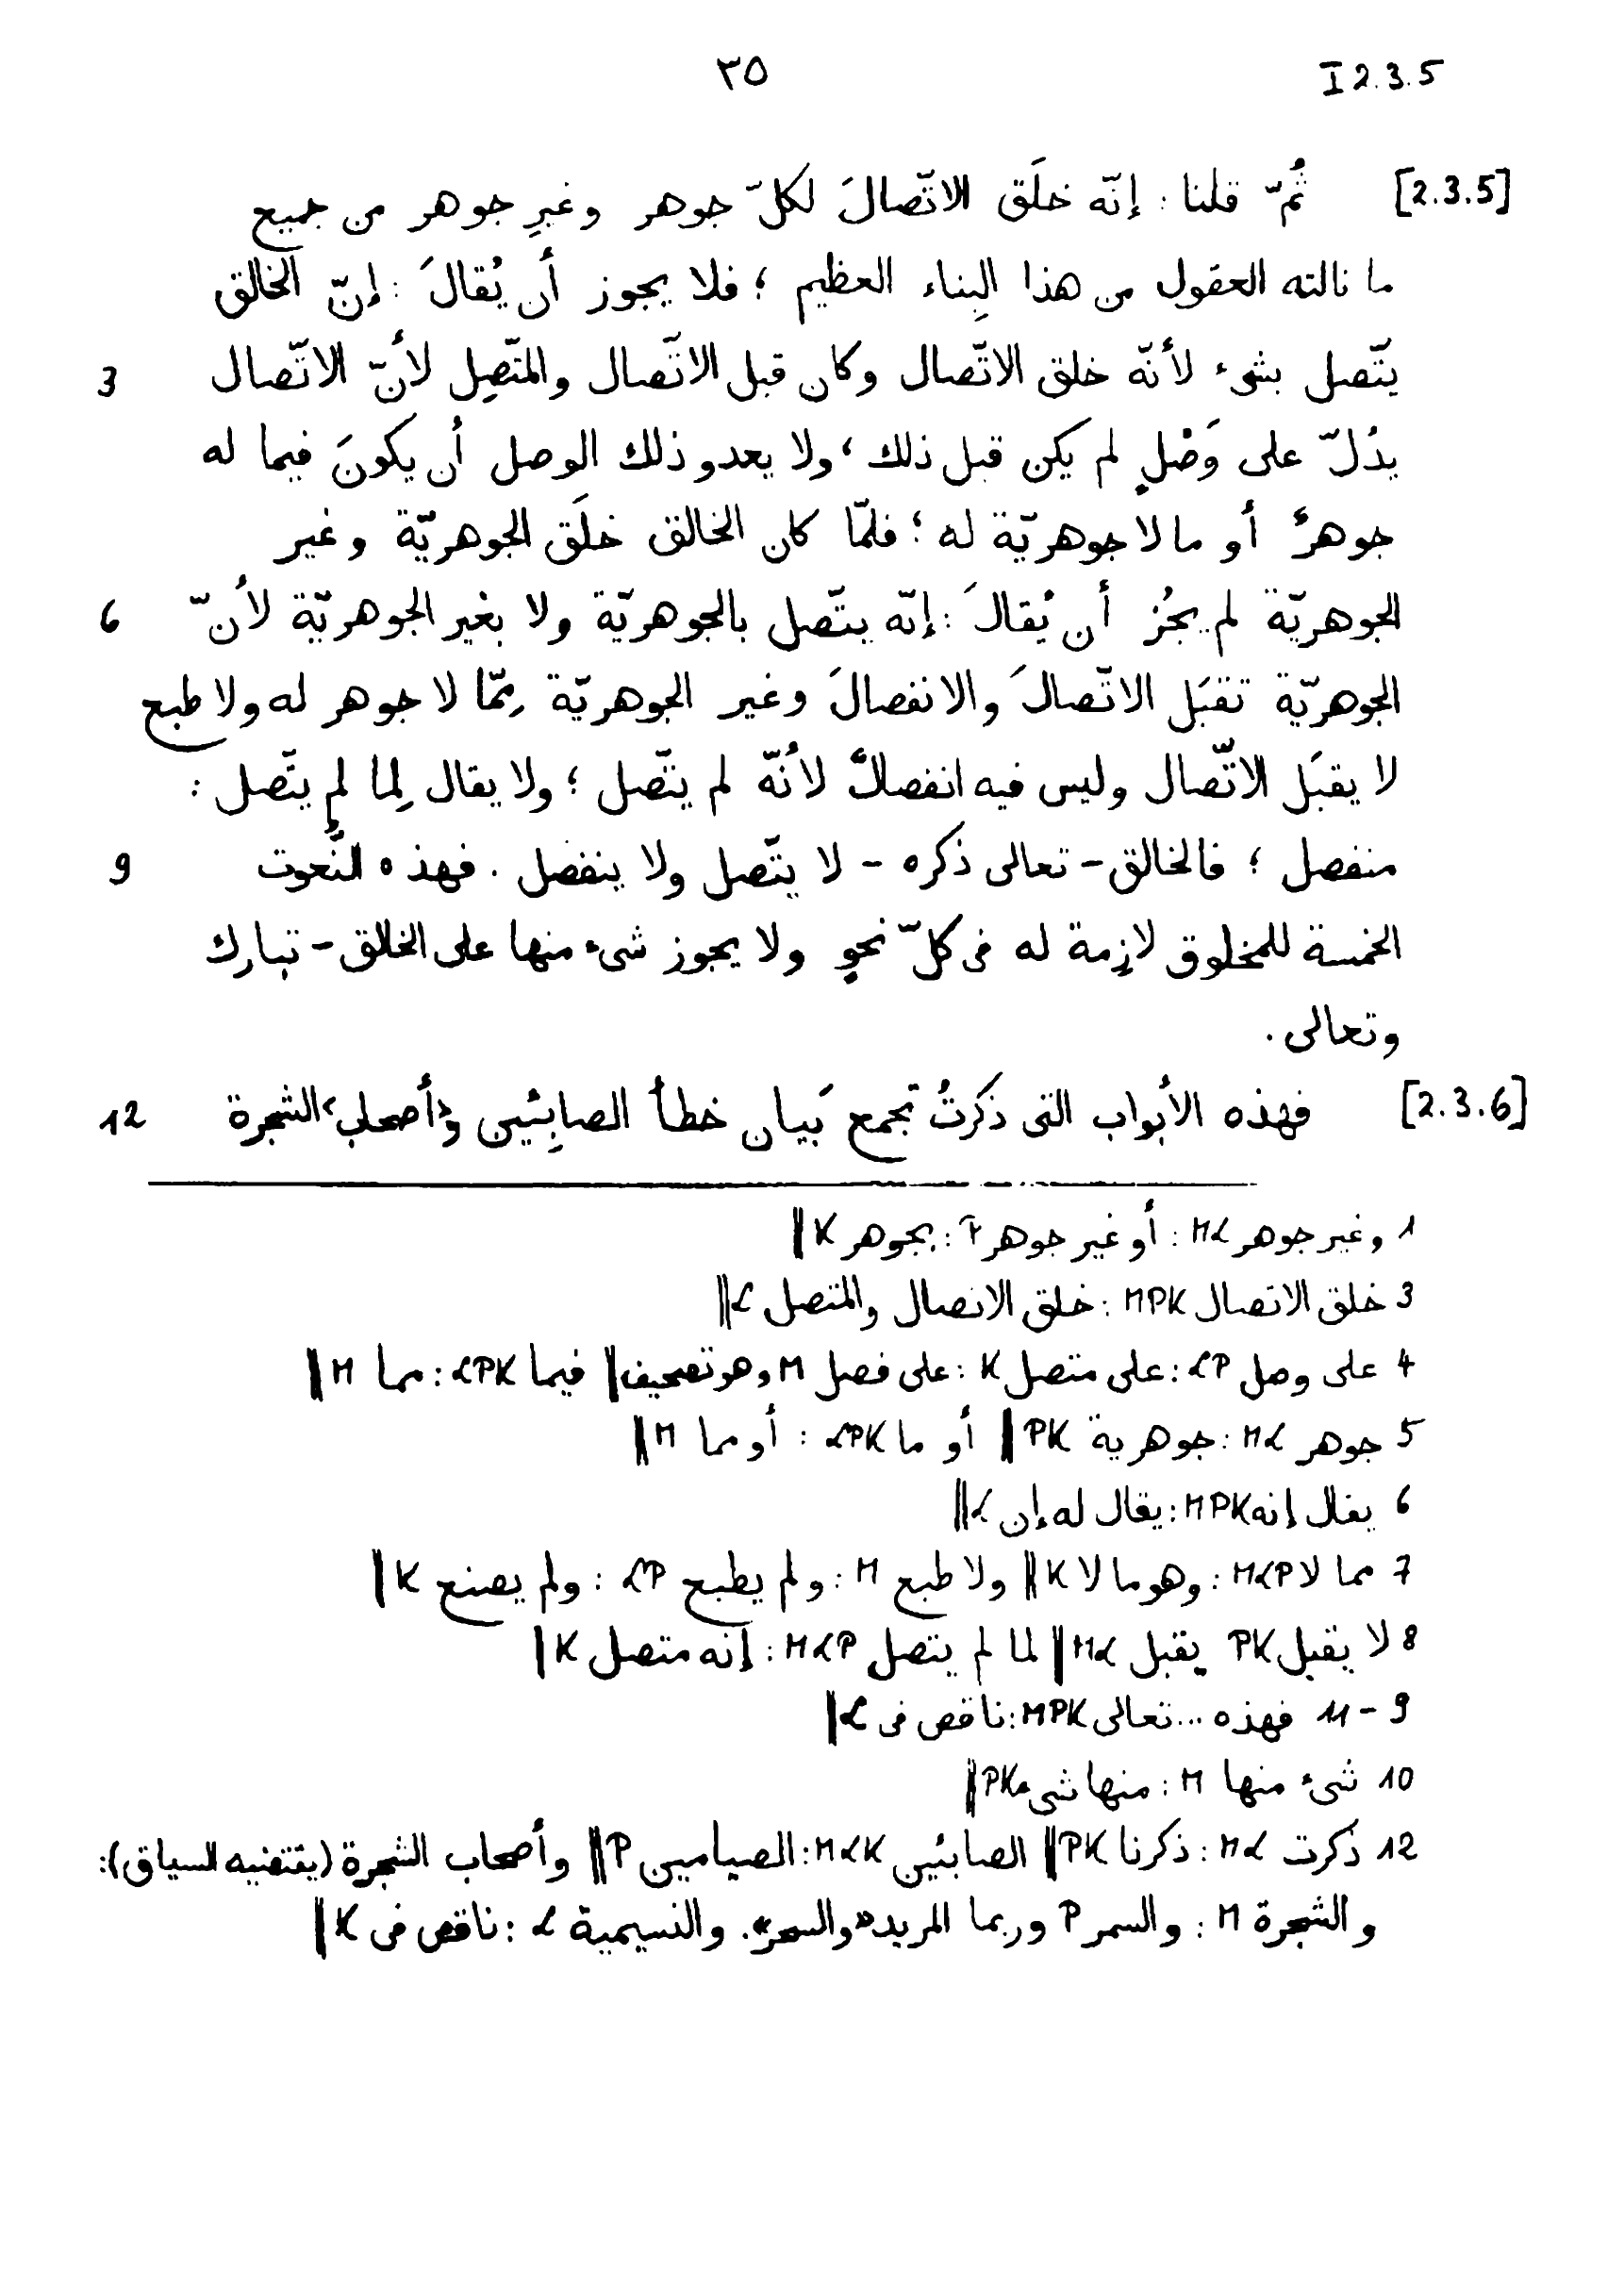 ٣٥
I 2.3.5
[2.3.5] ثُمّ قلنا : إنّه خلَق الاتّصالَ لكلّ جوهر وغيرِ جوهر من جميع
ما نالته العقول من هذا البِناء العظيم ؛ فلا يجوز أن يُقالَ : إنّ الخالق
يتّصل بشىء لأنّه خلق الاتّصال وكان قبل الاتّصال والمتّصِل لأنّ الاتّصال 3
يدُلّ على وَصْلٍ لم يكن قبل ذلك ، ولا يعدو ذلك الوصل أن يكونَ فيما له
جوهرٌ أو ما لا جوهريّة له ؛ فلمّا كان الخالق خلَق الجوهريّة وغير
الجوهريّة لم يجُز أن يُقالَ : إنّه يتّصل بالجوهريّة ولا بغير الجوهريّة لأنّ 6
الجوهريّة تقبَل الاتّصالَ والانفصالَ وغير الجوهريّة مِمّا لا جوهر له ولا طبع
لا يقبَل الاتّصال وليس فيه انفصالٌ لأنّه لم يتّصل ؛ ولا يقال لِما لم يتّصل :
منفصل ؛ فالخالق - تعالى ذكره - لا يتّصل ولا ينفصل . فهذه النُّعوت 9
الخمسة للمخلوق لازِمة له فى كلّ نحوٍ ولا يجوز شىء منها على الخالق - تبارك
وتعالى .
[2.3.6] فهذه الأبواب التى ذكرتُ تجمع بَيان خطأ الصابِئين و<أصحاب> الشجرة 12
1 وغير جوهر ML : أو غير جوهر P : بجوهر K ||
3 خلق الاتصال MPK : خلق الاتصال والمتصل L ||
4 على وصل LP : على متصل K : على فصل M وهو تصحيف || فيما LPK : مما M ||
5 جوهر ML : جوهرية PK || أو ما LPK : أو مما M ||
6 يقال إنه MPK : يقال له إن L ||
7 مما لا MLP : وهو ما لا K || ولا طبع M : ولم يطبع LP : ولم يصنع K ||
8 لا يقبل PK يقبل ML || لما لم يتصل MLP : إنه متصل K ||
9 - 11 فهذه ... تعالى MPK : ناقص فى L ||
10 شىء منها M : منها شىء PK ||
12 ذكرت ML : ذكرنا PK || الصابئين MLK : الصيامين P || وأصحاب الشجرة (يقتضيه السياق) :
والشجرة M : والسمر P وربما المريد «والسحر» . والنسيمية L : ناقص فى K ||